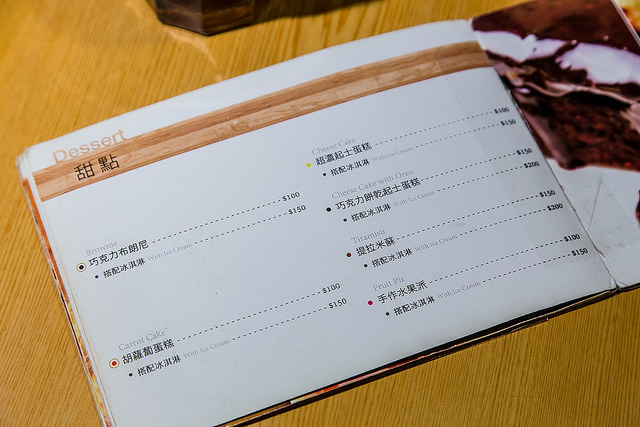 Dessert
甜點
Brownie
巧克力布朗尼 $100
搭配冰淇淋 With Ice Cream $150
Carrot Cake
胡蘿蔔蛋糕 $100
搭配冰淇淋 With Ice Cream $150
Cheese Cake
超濃起士蛋糕 $100
搭配冰淇淋 With Ice Cream $150
Cheese Cake with Oreo
巧克力餅乾起士蛋糕 $150
搭配冰淇淋 With Ice Cream $200
Tiramisu
提拉米蘇 $150
搭配冰淇淋 With Ice Cream $200
Fruit Pie
手作水果派 $100
搭配冰淇淋 With Ice Cream $150